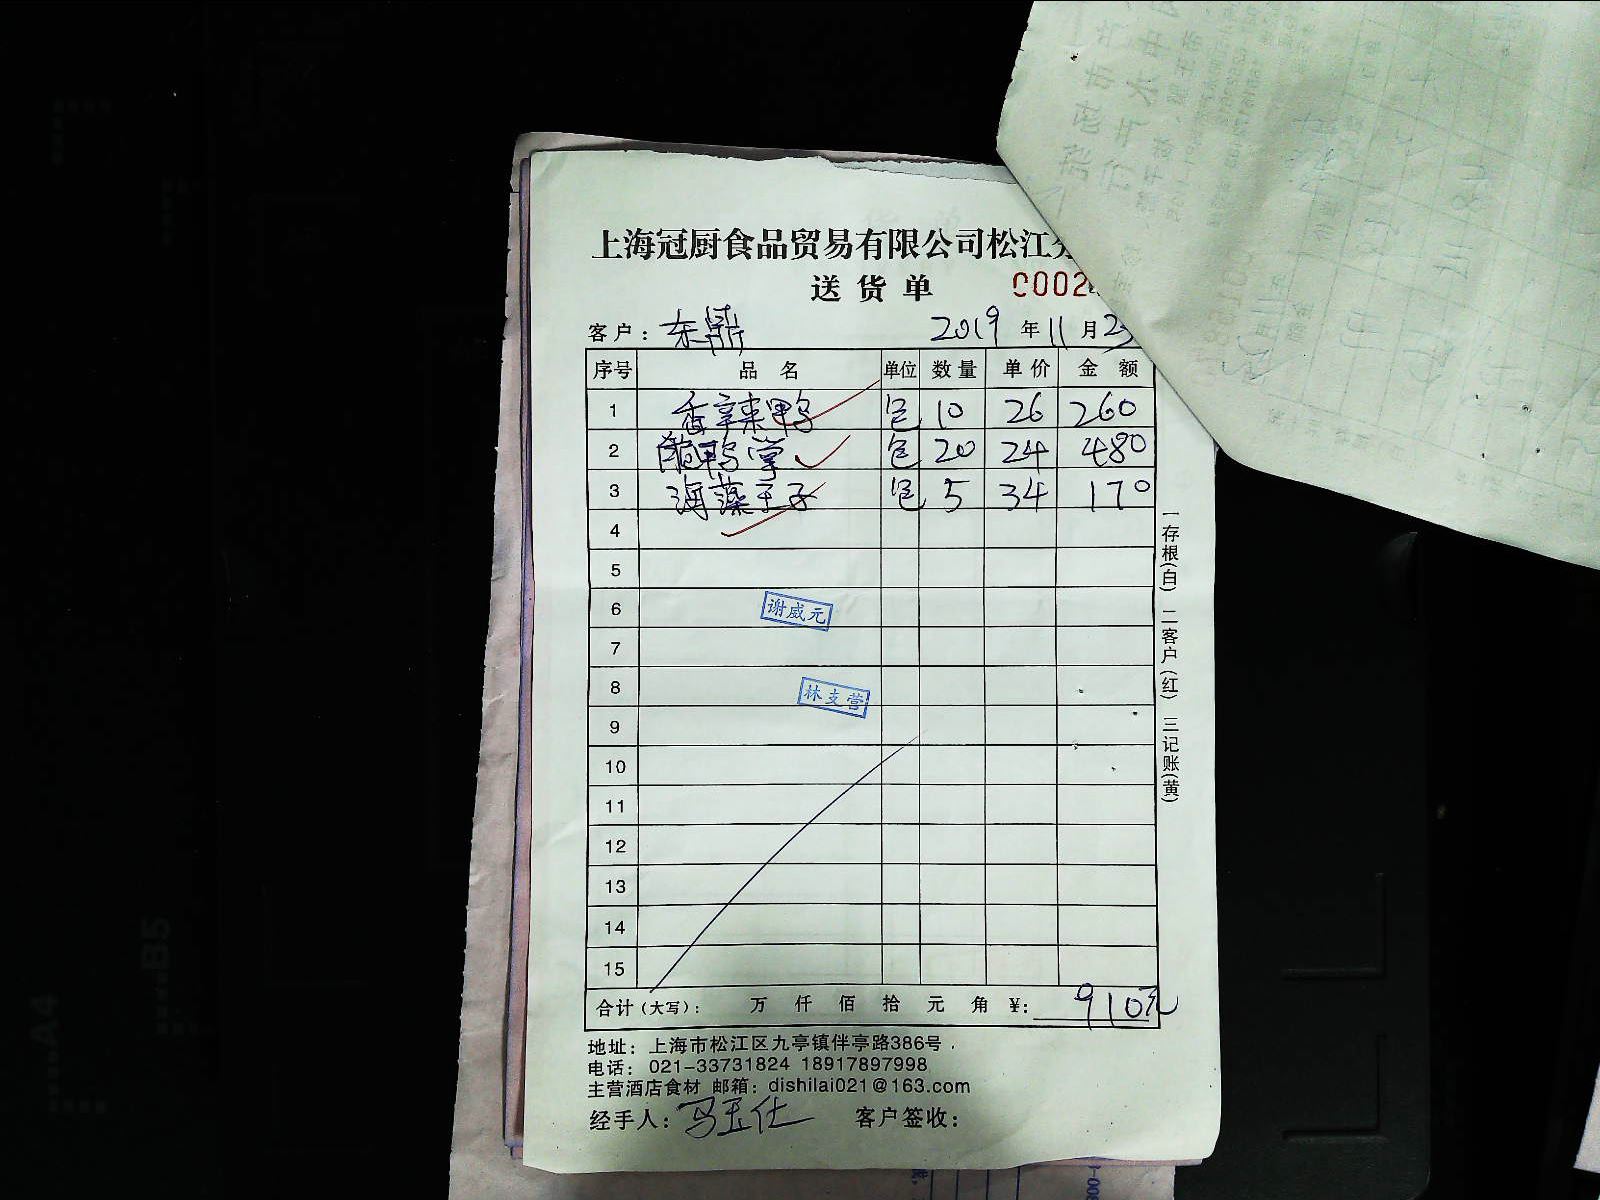 上海冠厨食品贸易有限公司松江
送货单 0002
客户：东鼎 2019年11月23
序号 品名 单位 数量 单价 金额
1 香辣鸭 包 10 26 260
2 鸭掌 包 20 24 480
3 海藻王子 包 5 34 170
4
5
6 谢威元
7
8 林支营
9
10
11
12
13
14
15
合计（大写）： 万 仟 佰 拾 元 角 ¥: 910元
地址：上海市松江区九亭镇伴亭路386号
电话：021-33731824 18917897998
主营酒店食材 邮箱：dishilai021@163.com
经手人：马玉仕 客户签收：
一存根(白) 二客户(红) 三记账(黄)
B5
A4